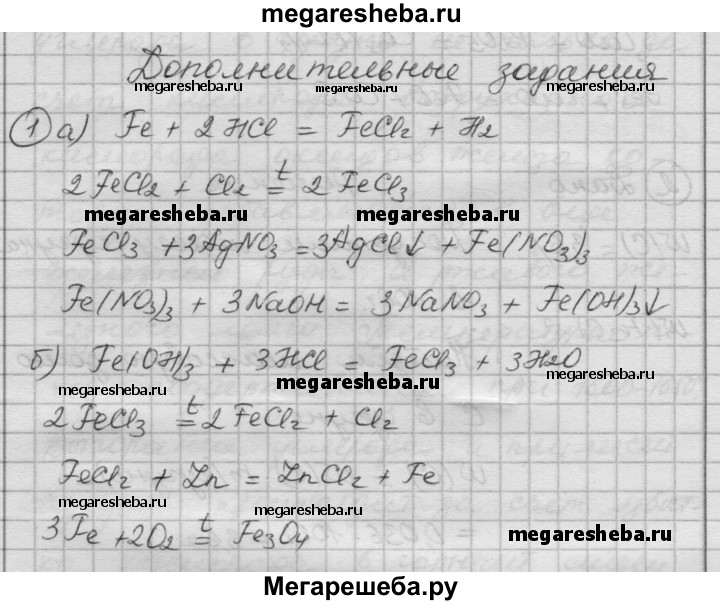 megaresheba.ru
Дополнительные задания
megaresheba.ru megaresheba.ru megaresheba.ru
① а) Fe + 2HCl = FeCl₂ + H₂
2FeCl₂ + Cl₂ =ᵗ 2FeCl₃
megaresheba.ru megaresheba.ru
FeCl₃ + 3AgNO₃ = 3AgCl↓ + Fe(NO₃)₃
Fe(NO₃)₃ + 3NaOH = 3NaNO₃ + Fe(OH)₃↓
б) Fe(OH)₃ + 3HCl = FeCl₃ + 3H₂O
megaresheba.ru megaresheba.ru megaresheba.ru
2FeCl₃ =ᵗ 2FeCl₂ + Cl₂
FeCl₂ + Zn = ZnCl₂ + Fe
megaresheba.ru megaresheba.ru
3Fe + 2O₂ =ᵗ Fe₃O₄
megaresheba.ru
Мегарешеба.ру